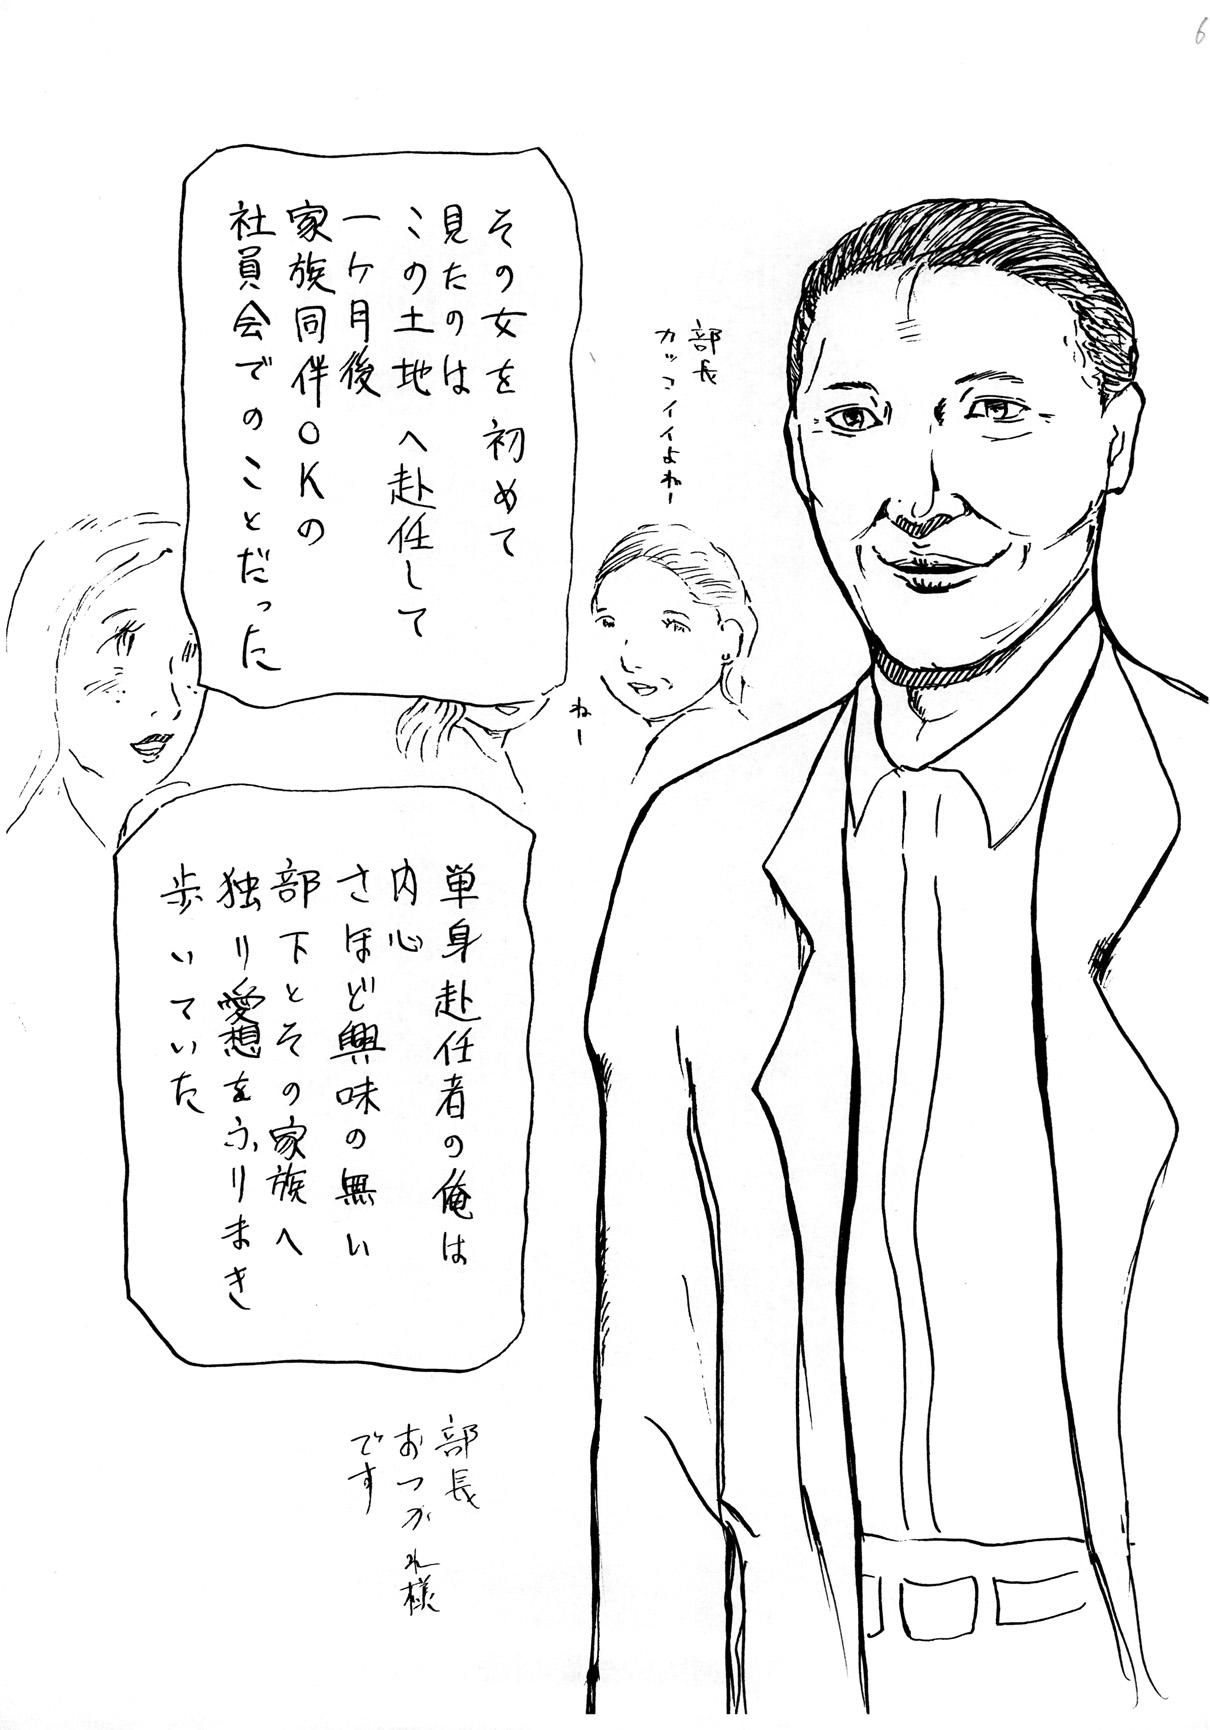 6
その女を初めて
見たのは
この土地へ赴任して
一ヶ月後
家族同伴OKの
社員会でのことだった
部長
カッコイイよねー
ねー
単身赴任者の俺は
内心
さほど興味の無い
部下とその家族へ
独り愛想をふりまき
歩いていた
部長
おつかれ様
です